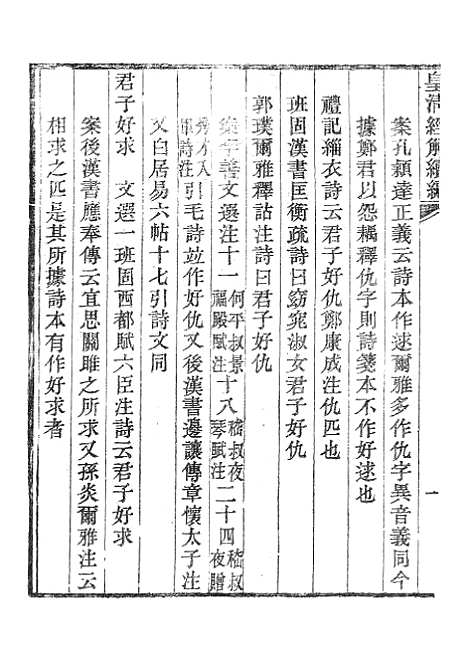 皇清經解續編
一
案孔穎達正義云詩本作逑爾雅多作仇字異音義同今
據鄭君以怨耦釋仇字則詩箋本不作好逑也
禮記緇衣詩云君子好仇鄭康成注仇匹也
班固漢書匡衡疏詩曰窈窕淑女君子好仇
郭璞爾雅釋詁注詩曰君子好仇
案李善文選注十一何平叔景福殿賦注十八嵇叔夜琴賦注二十四嵇叔夜贈
秀才入軍詩注引毛詩竝作好仇又後漢書邊讓傳章懷太子注
又白居易六帖十七引詩文同
君子好求 文選一班固西都賦六臣注詩云君子好求
案後漢書應奉傳云宜思關雎之所求又孫炎爾雅注云
相求之匹是其所據詩本有作好求者